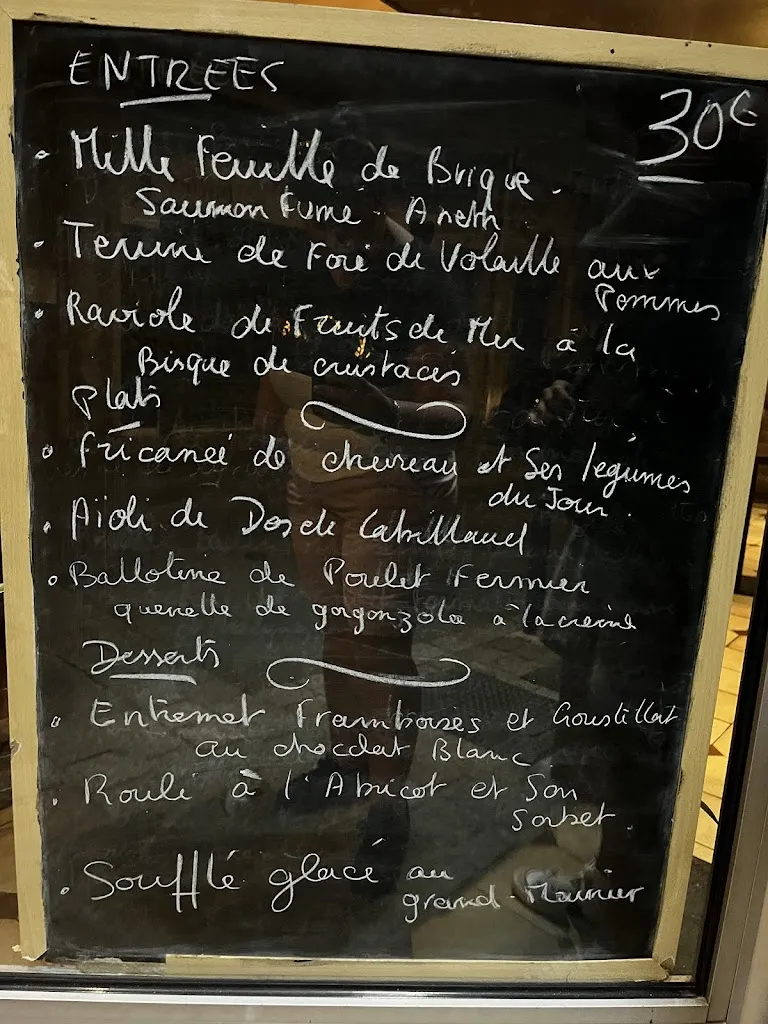 ENTREES
30€
. Mille Feuille de Brique.
Saumon Fumé - Aneth
. Terrine de Foie de Volaille aux
Pommes
. Raviole de Fruits de Mer à la
Bisque de crustacés
Plats
. Fricaneé de chevreau et Ses légumes
du Jour.
. Aïoli de Dos de Cabillaud
. Ballotine de Poulet Fermier
quenelle de gorgonzola à la crème
Desserts
. Entremet Framboises et Croustillat
au chocolat Blanc
. Roulé à l'Abricot et Son
Sorbet.
. Soufflé glacé au
grand-Marnier